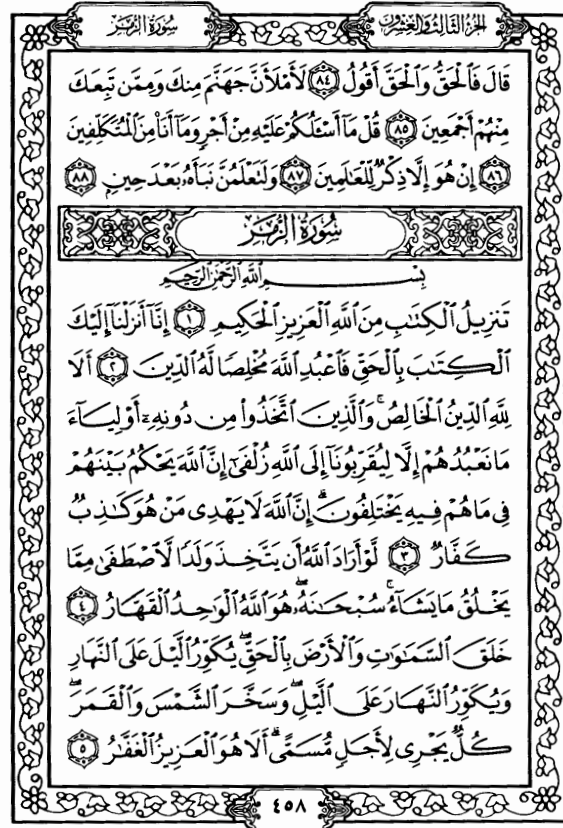 سُورَةُ الزُّمَرِ الجُزْءُ الثَّالِثُ وَالعِشْرُونَ
قَالَ فَٱلْحَقُّ وَٱلْحَقَّ أَقُولُ ٨٤ لَأَمْلَأَنَّ جَهَنَّمَ مِنكَ وَمِمَّن تَبِعَكَ
مِنْهُمْ أَجْمَعِينَ ٨٥ قُلْ مَآ أَسْـَٔلُكُمْ عَلَيْهِ مِنْ أَجْرٍ وَمَآ أَنَا۠ مِنَ ٱلْمُتَكَلِّفِينَ
٨٦ إِنْ هُوَ إِلَّا ذِكْرٌ لِّلْعَٰلَمِينَ ٨٧ وَلَتَعْلَمُنَّ نَبَأَهُۥ بَعْدَ حِينٍۭ ٨٨
سُورَةُ الزُّمَرِ
بِسْمِ ٱللَّهِ ٱلرَّحْمَٰنِ ٱلرَّحِيمِ
تَنزِيلُ ٱلْكِتَٰبِ مِنَ ٱللَّهِ ٱلْعَزِيزِ ٱلْحَكِيمِ ١ إِنَّآ أَنزَلْنَآ إِلَيْكَ
ٱلْكِتَٰبَ بِٱلْحَقِّ فَٱعْبُدِ ٱللَّهَ مُخْلِصًا لَّهُ ٱلدِّينَ ٢ أَلَا
لِلَّهِ ٱلدِّينُ ٱلْخَالِصُ ۚ وَٱلَّذِينَ ٱتَّخَذُوا۟ مِن دُونِهِۦٓ أَوْلِيَآءَ
مَا نَعْبُدُهُمْ إِلَّا لِيُقَرِّبُونَآ إِلَى ٱللَّهِ زُلْفَىٰٓ إِنَّ ٱللَّهَ يَحْكُمُ بَيْنَهُمْ
فِى مَا هُمْ فِيهِ يَخْتَلِفُونَ ۗ إِنَّ ٱللَّهَ لَا يَهْدِى مَنْ هُوَ كَٰذِبٌ
كَفَّارٌ ٣ لَّوْ أَرَادَ ٱللَّهُ أَن يَتَّخِذَ وَلَدًا لَّٱصْطَفَىٰ مِمَّا
يَخْلُقُ مَا يَشَآءُ ۚ سُبْحَٰنَهُۥ ۖ هُوَ ٱللَّهُ ٱلْوَٰحِدُ ٱلْقَهَّارُ ٤
خَلَقَ ٱلسَّمَٰوَٰتِ وَٱلْأَرْضَ بِٱلْحَقِّ ۖ يُكَوِّرُ ٱلَّيْلَ عَلَى ٱلنَّهَارِ
وَيُكَوِّرُ ٱلنَّهَارَ عَلَى ٱلَّيْلِ ۖ وَسَخَّرَ ٱلشَّمْسَ وَٱلْقَمَرَ ۖ
كُلٌّ يَجْرِى لِأَجَلٍ مُّسَمًّى ۗ أَلَا هُوَ ٱلْعَزِيزُ ٱلْغَفَّٰرُ ٥
٤٥٨